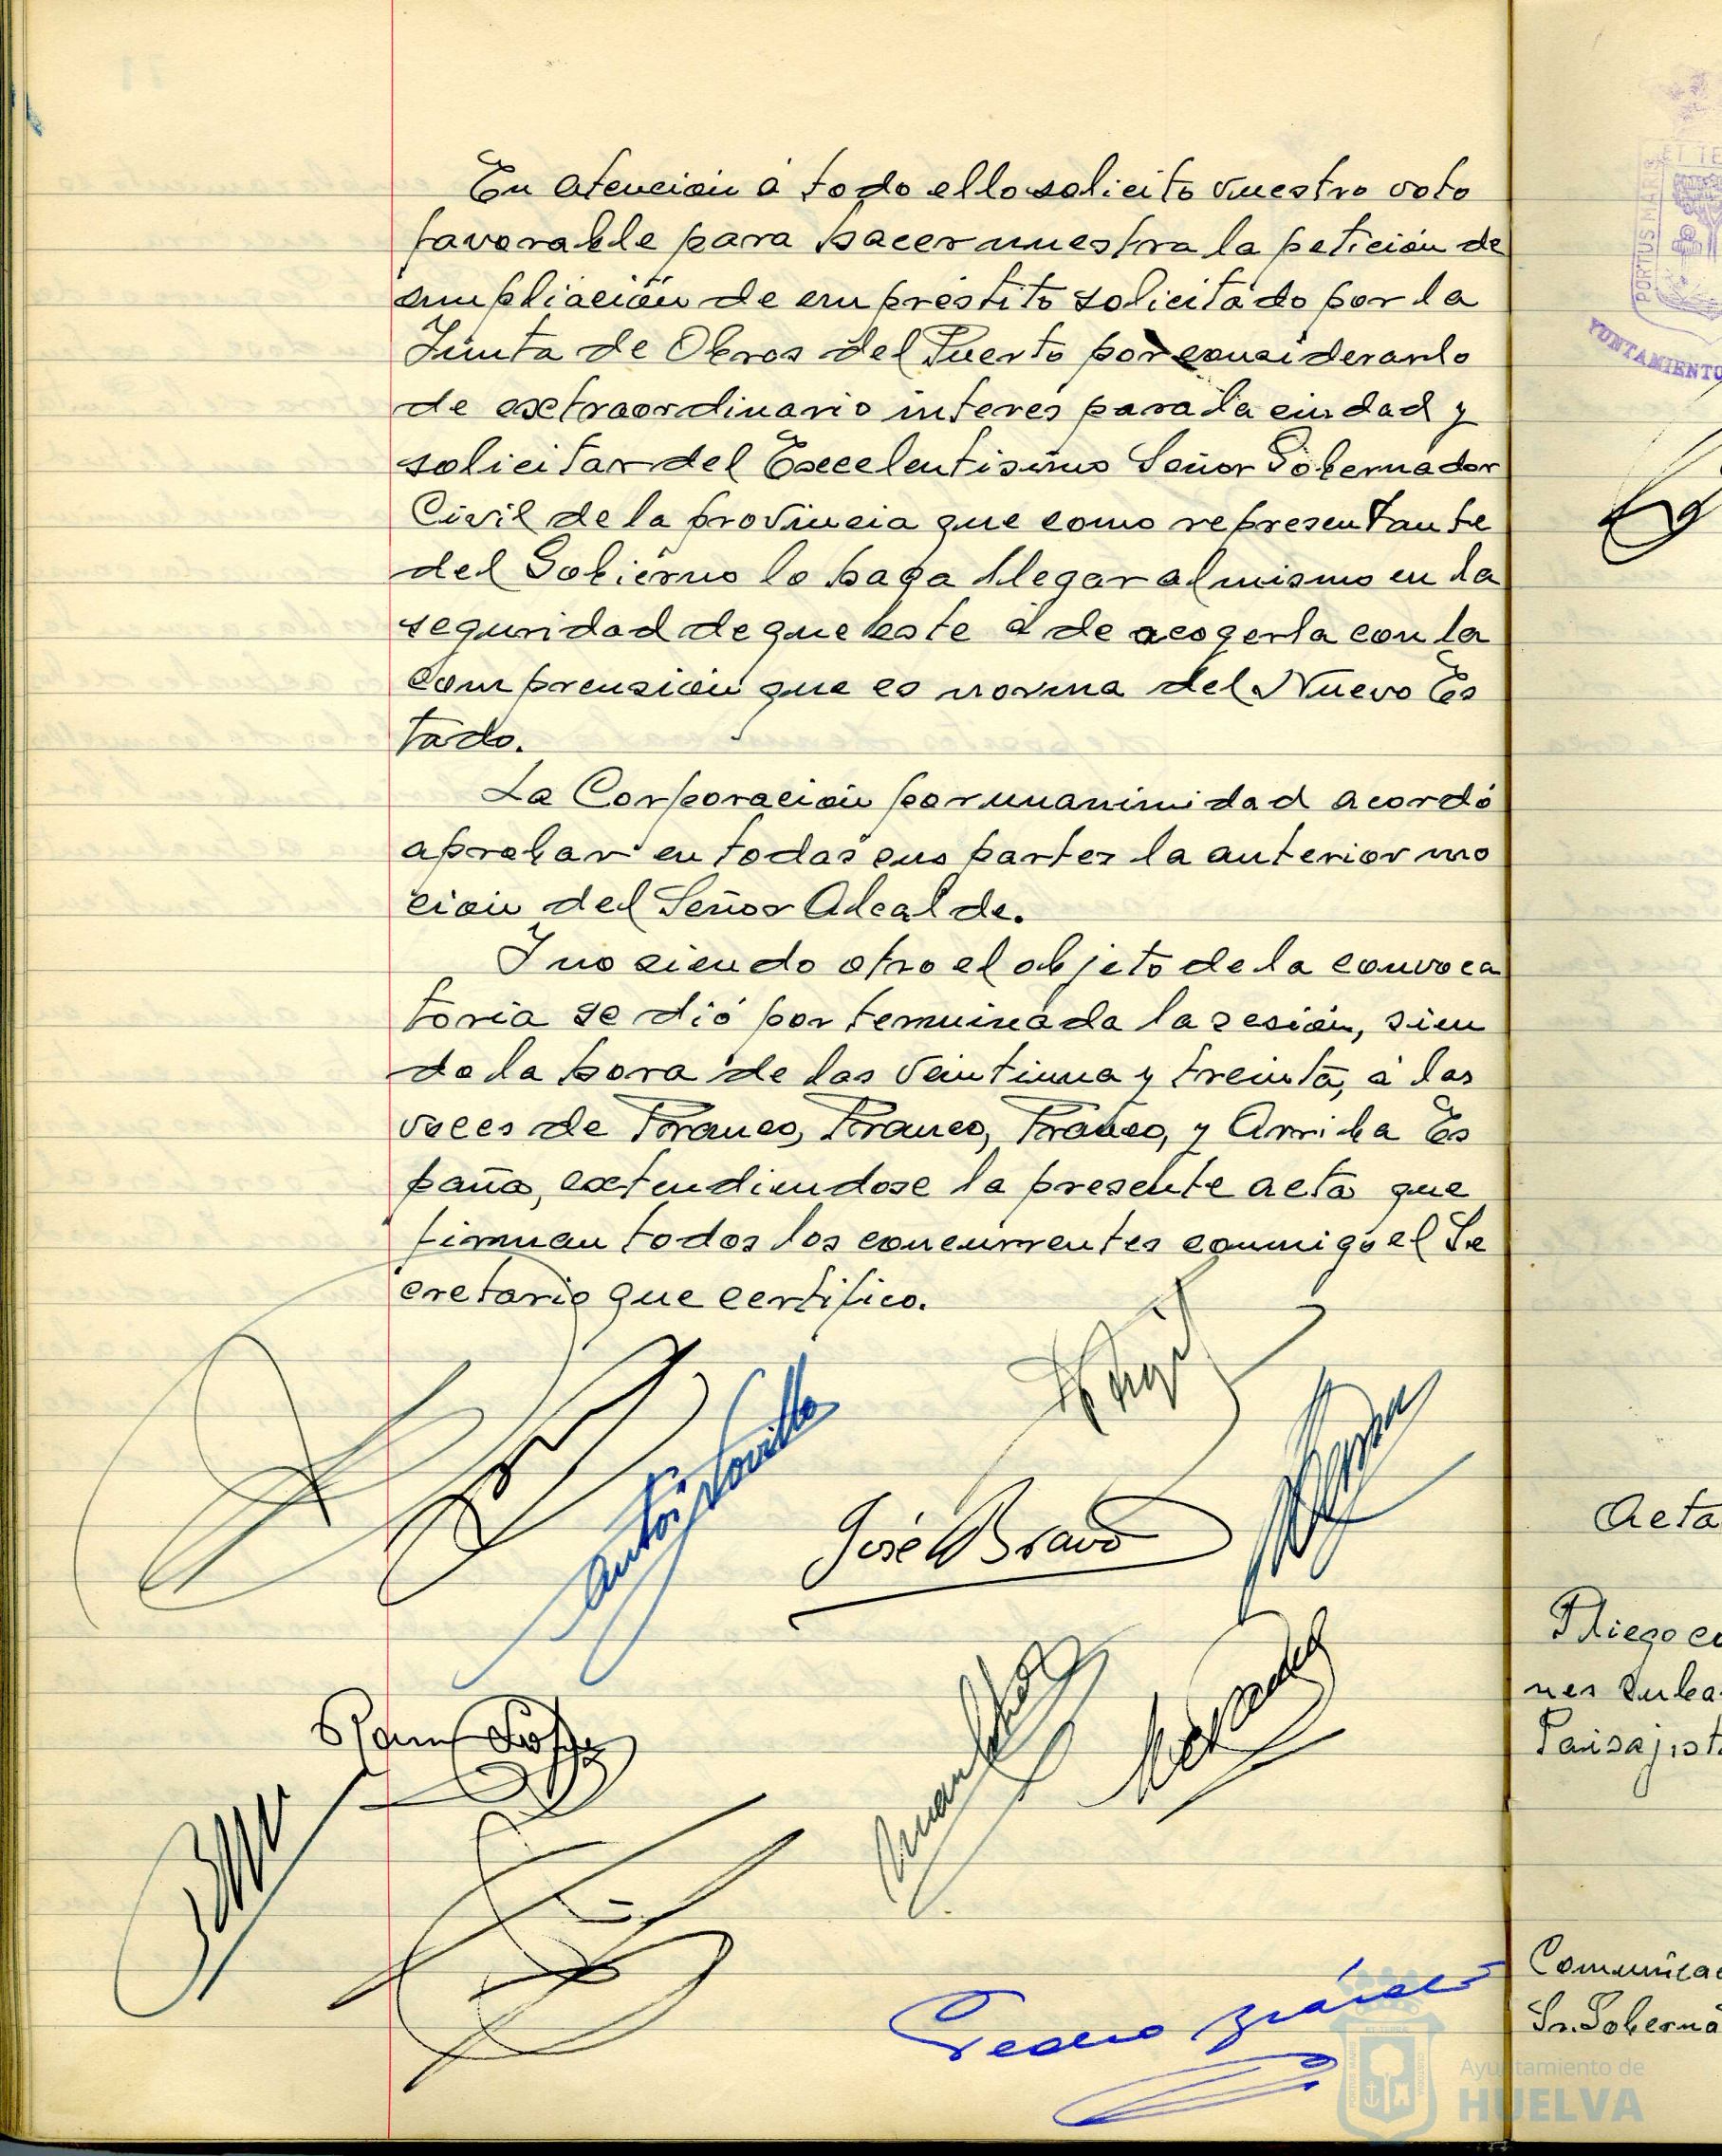 En atención á todo ello solicito vuestro voto
favorable para hacer nuestra la petición de
ampliación de empréstito solicitado por la
Junta de Obras del Puerto por considerarlo
de extraordinario interés para la ciudad y
solicitar del Excelentísimo Señor Gobernador
Civil de la provincia que como representante
del Gobierno lo haga llegar al mismo en la
seguridad de que este á de acogerla con la
comprensión que es norma del Nuevo Es
tado.
La Corporación por unanimidad acordó
aprobar en todas sus partes la anterior mo
ción del Señor Alcalde.
Y no siendo otro el objeto de la convoca
toria se dió por terminada la sesión, sien
do la hora de las veintiuna y treinta, á las
voces de Franco, Franco, Franco, y Arriba Es
paña, extendiendose la presente acta que
firman todos los concurrentes conmigo el Se
cretario que certifico.
José Bravo
Pedro
Acta
Pliego co
nes suba
Paisajist
Comunica
Sr. Goberna
PORTUS MARIS
ET TE
YUNTAMIENTO
Ayuntamiento de
HUELVA